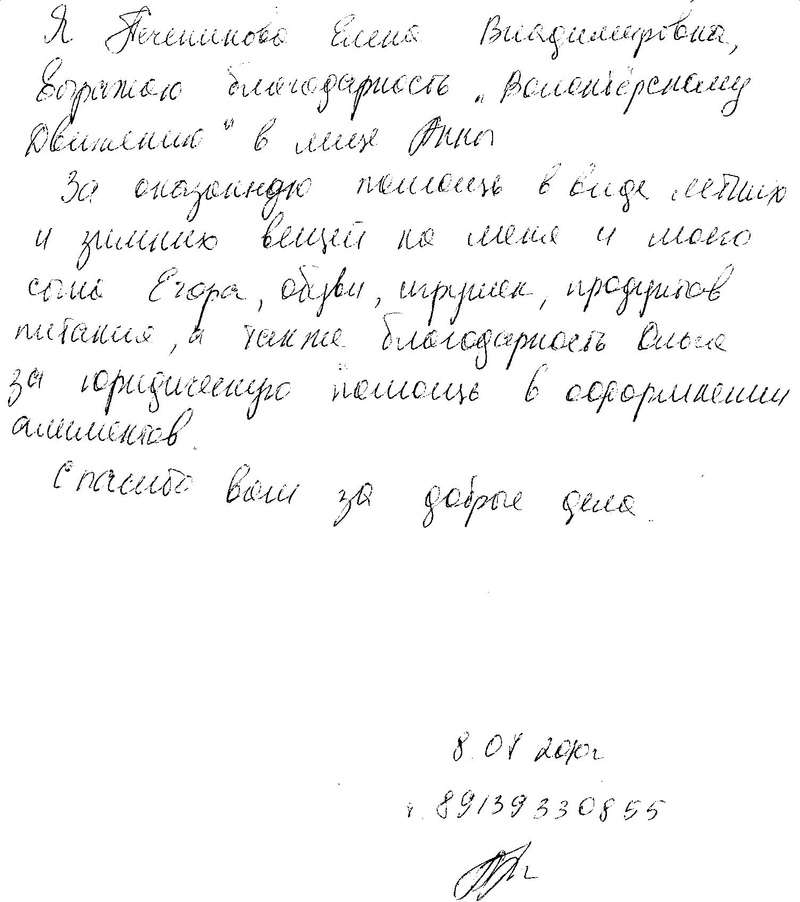 Я Печеникова Елена Владимировна,
Выражаю благодарность „Волонтёрскому
Движению" в лице Анны
За оказанную помощь в виде летних
и зимних вещей на меня и моего
сына Егора, обуви, игрушек, продуктов
питания, а также благодарность Ольге
за юридическую помощь в оформлении
алиментов.
Спасибо вам за добрые дела.
8.04 2010г
т. 89139330855